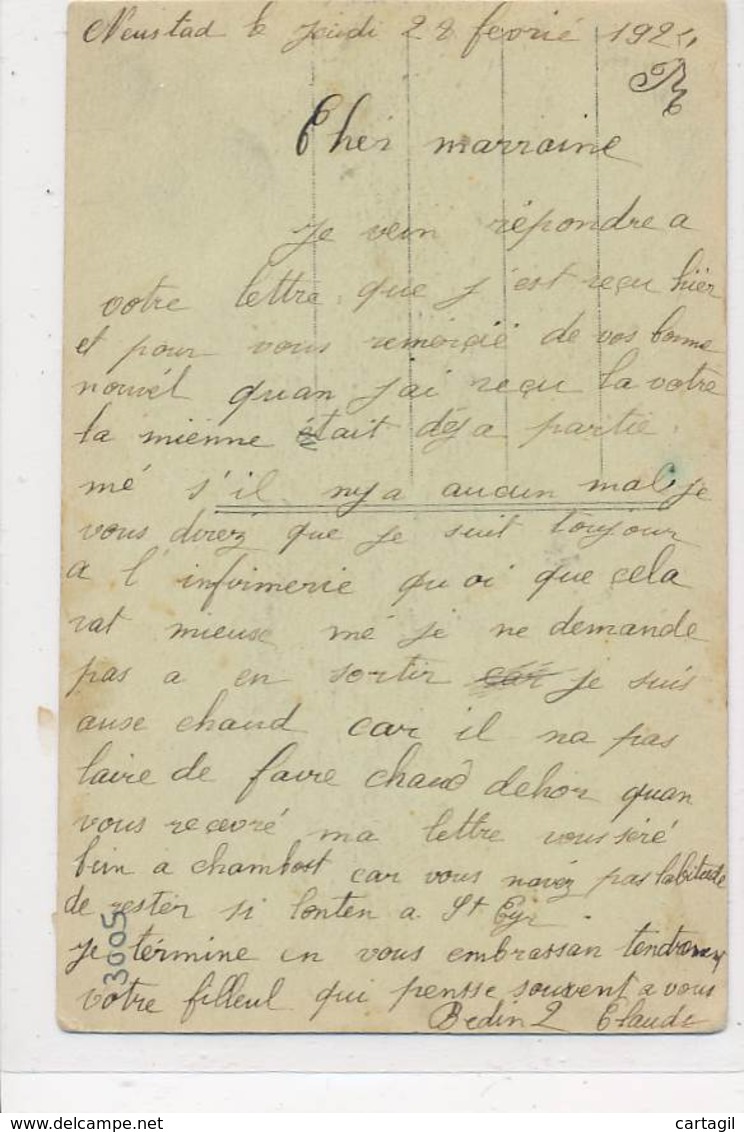 Neustad le jeudi 28 fevrié 192
Cher marraine
Je vein répondre a
votre lettre que j'est reçu hier
et pour vous remercié de vos bonne
nouvél quan j'ai reçu la votre
la mienne était déja partie.
mé s'il nya aucun mal je
vous direz que je suit toujour
a l'infirmerie quoi que çela
vat mieuse mé je ne demande
pas a en sortir car je suis
ause chaud car il na pas
laire de faire chaud dehor quan
vous reçevré ma lettre vous séré
bien a chambost car vous navéz pas labitude
de rester si lonten a St Cyr.
Je términe en vous embrassan tendrement
votre filleul qui pensse souvent a vous
Bedin Claude
3005
cartagil